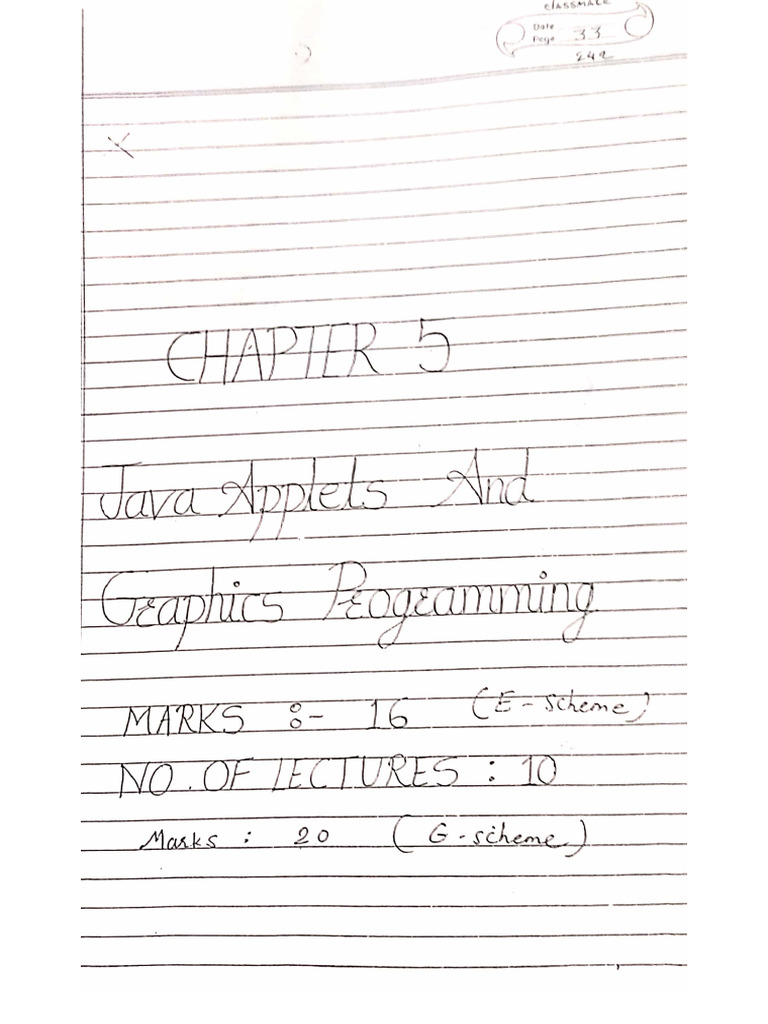 classmate
Date
Page 33
242
CHAPTER 5
Java Applets And
Graphics Programming
MARKS :- 16 (E-scheme)
NO. OF LECTURES : 10
Marks : 20 (G-scheme)